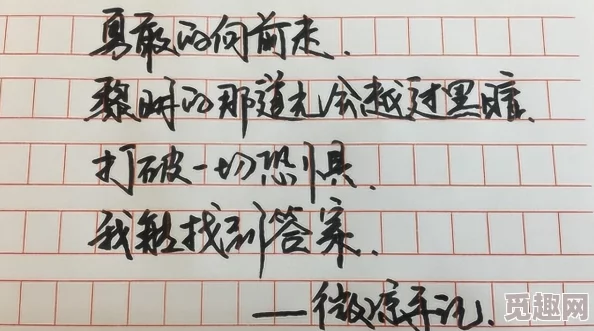 勇敢的向前走.
黎明的那道光会越过黑暗.
打破一切恐惧.
我能找到答案.
——微凉手记.
觅趣网